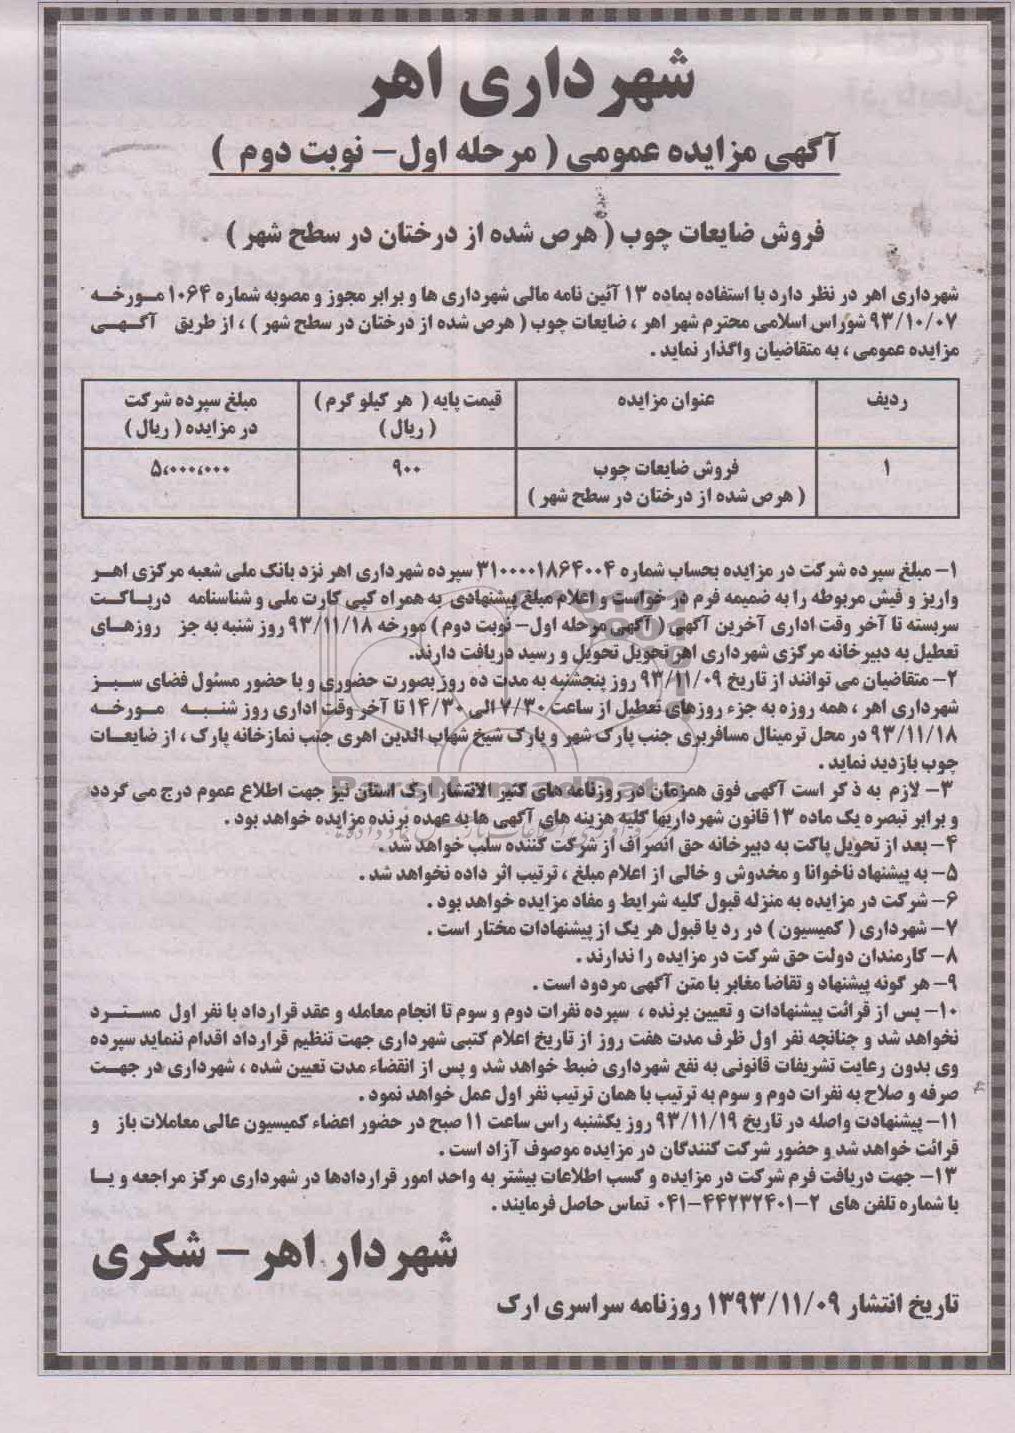 شهرداری اهر
آگهی مزایده عمومی ( مرحله اول- نوبت دوم )
فروش ضایعات چوب ( هرص شده از درختان در سطح شهر ) .
شهرداری اهر در نظر دارد با استفاده بماده ۱۳ آئین نامه مالی شهرداری ها و برابر مجوز و مصوبه شماره ۱۰۶۴ مورخه
۹۳/۱۰/۰۷ شوراس اسلامی محترم شهر اهر ، ضایعات چوب ( هرص شده از درختان در سطح شهر ) ، از طریق آگهی
مزایده عمومی ، به متقاضیان واگذار نماید .
ردیف عنوان مزایده قیمت پایه ( هر کیلو گرم ) ( ریال ) مبلغ سپرده شرکت در مزایده ( ریال )
۱ فروش ضایعات چوب ( هرص شده از درختان در سطح شهر ) ۹۰۰ ۵،۰۰۰،۰۰۰
۱- مبلغ سپرده شرکت در مزایده بحساب شماره ۳۱۰۰۰۰۱۸۶۴۰۰۴ سپرده شهرداری اهر نزد بانک ملی شعبه مرکزی اهر
واریز و فیش مربوطه را به ضمیمه فرم در خواست و اعلام مبلغ پیشنهادی به همراه کپی کارت ملی و شناسنامه درپاکت
سربسته تا آخر وقت اداری آخرین آگهی ( آگهی مرحله اول- نوبت دوم ) مورخه ۹۳/۱۱/۱۸ روز شنبه به جز روزهای
تعطیل به دبیرخانه مرکزی شهرداری اهر تحویل تحویل و رسید دریافت دارند.
۲- متقاضیان می توانند از تاریخ ۹۳/۱۱/۰۹ روز پنجشنبه به مدت ده روز بصورت حضوری و با حضور مسئول فضای سبز
شهرداری اهر ، همه روزه به جزء روزهای تعطیل از ساعت ۷/۳۰ الی ۱۴/۳۰ تا آخر وقت اداری روز شنبه مورخه
۹۳/۱۱/۱۸ در محل ترمینال مسافربری جنب پارک شهر و پارک شیخ شهاب الدین اهری جنب نمازخانه پارک ، از ضایعات
چوب بازدید نماید .
۳- لازم به ذکر است آگهی فوق همزمان در روزنامه های کثیر الانتشار ارک استان نیز جهت اطلاع عموم درج می گردد
و برابر تبصره یک ماده ۱۳ قانون شهرداریها کلیه هزینه های آگهی ها به عهده برنده مزایده خواهد بود .
۴- بعد از تحویل پاکت به دبیرخانه حق انصراف از شرکت کننده سلب خواهد شد .
۵- به پیشنهاد ناخوانا و مخدوش و خالی از اعلام مبلغ ، ترتیب اثر داده نخواهد شد .
۶- شرکت در مزایده به منزله قبول کلیه شرایط و مفاد مزایده خواهد بود .
۷- شهرداری ( کمیسیون ) در رد یا قبول هر یک از پیشنهادات مختار است .
۸- کارمندان دولت حق شرکت در مزایده را ندارند .
۹- هر گونه پیشنهاد و تقاضا مغابر با متن آگهی مردود است .
۱۰- پس از قرائت پیشنهادات و تعیین برنده ، سپرده نفرات دوم و سوم تا انجام معامله و عقد قرارداد با نفر اول مسترد
نخواهد شد و چنانچه نفر اول ظرف مدت هفت روز از تاریخ اعلام کتبی شهرداری جهت تنظیم قرارداد اقدام ننماید سپرده
وی بدون رعایت تشریفات قانونی به نفع شهرداری ضبط خواهد شد و پس از انقضاء مدت تعیین شده ، شهرداری در جهت
صرفه و صلاح به نفرات دوم و سوم به ترتیب با همان ترتیب نفر اول عمل خواهد نمود .
۱۱- پیشنهادت واصله در تاریخ ۹۳/۱۱/۱۹ روز یکشنبه راس ساعت ۱۱ صبح در حضور اعضاء کمیسیون عالی معاملات باز و
قرائت خواهد شد و حضور شرکت کنندگان در مزایده موصوف آزاد است .
۱۳- جهت دریافت فرم شرکت در مزایده و کسب اطلاعات بیشتر به واحد امور قراردادها در شهرداری مرکز مراجعه و یا
با شماره تلفن های ۲-۴۴۲۳۲۴۰۱-۰۴۱ تماس حاصل فرمایند .
شهردار اهر - شکری
تاریخ انتشار ۱۳۹۳/۱۱/۰۹ روزنامه سراسری ارک
ParsNamadData